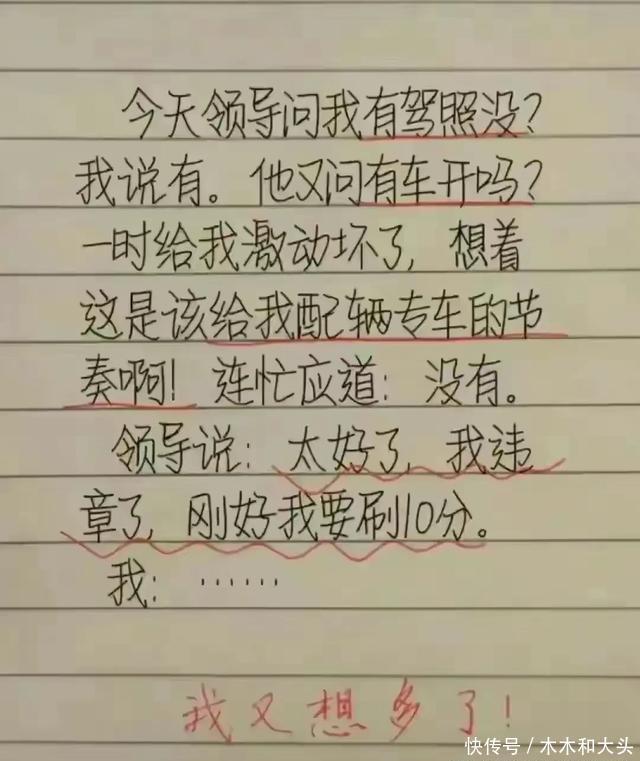 今天领导问我有驾照没?
我说有。他又问有车开吗?
一时给我激动坏了,想着
这是该给我配辆专车的节
奏啊!连忙应道:没有。
领导说:太好了,我违
章了,刚好我要刷10分。
我:……
我又想多了!
快传号/木木和大头